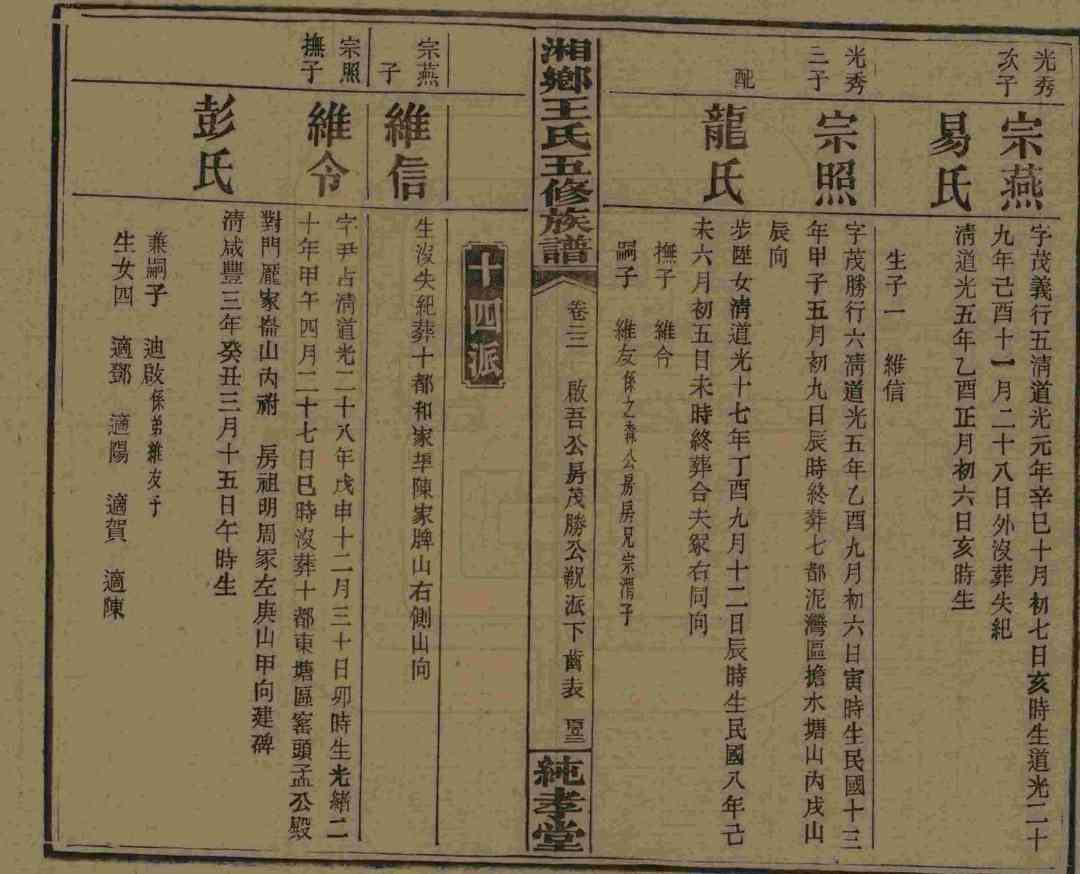 光秀
次子
宗燕
字茂義行五淸道光元年辛巳十月初七日亥時生道光二十
九年己酉十一月二十八日外沒葬失紀
易氏
淸道光五年乙酉正月初六日亥時生
生子一　維信
光秀
三子
宗照
字茂勝行六淸道光五年乙酉九月初六日寅時生民國十三
年甲子五月初九日辰時終葬七都泥灣區擔水塘山內戌山
辰向
配
龍氏
步陞女淸道光十七年丁酉九月十二日辰時生民國八年己
未六月初五日未時終葬合夫冢右同向
撫子　維令
嗣子　維友係之森公房房兄宗渭子
湘鄉王氏五修族譜
卷三二
啟吾公房茂勝公派下齒表
純孝堂
十四派
宗燕
子
維信
生沒失紀葬十都和家埧陳家牌山右側山向
宗照
撫子
維令
字尹占淸道光二十八年戊申十二月三十日卯時生光緒二
十年甲午四月二十七日巳時沒葬十都東塘區窰頭孟公殿
對門龐家崙山內祔　房祖明周冢左庚山甲向建碑
彭氏
淸咸豐三年癸丑三月十五日午時生
兼嗣子　迪啟係弟維友子
生女四　適鄧　適陽　適賀　適陳